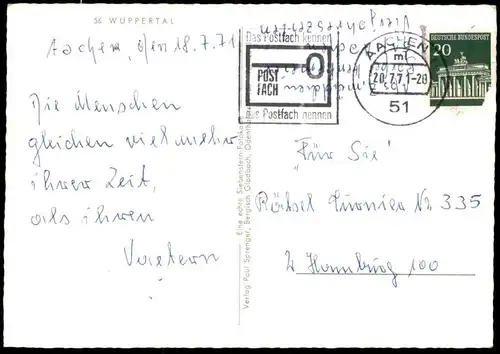 56 WUPPERTAL
Aachen, den 18.7.71
Die Menschen
gleichen vielmehr
ihrer Zeit,
als ihren
Vätern
Eine echte Siebenstern-Fotokarte
Verlag Paul Sprenger, Bergisch Gladbach, Odenth
Das Postfach kennen
POST
FACH
Das Postfach nennen
AACHEN
m
20.7.71-20
51
DEUTSCHE BUNDESPOST
20
Vierjahreszeiten
"Für Sie"
Rätsel Turnier Nr 335
2 Hamburg 100